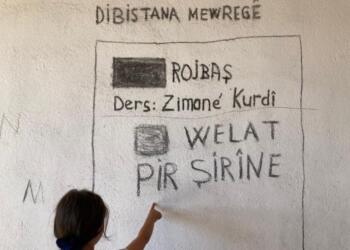 DİBİSTANA MEWREGÊ
ROJBAŞ
Ders: Zimané Kurdî
WELAT
PİR ŞİRÎNE
N
N